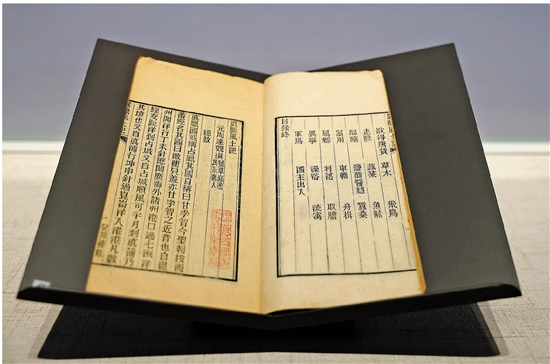 欲得唐貨 草木 飛鳥
走獸 蔬菜 魚龍
醖釀 鹽醋醬麴 蠶桑
器用 車轎 舟楫
屬郡 村落 取膽
異事 澡浴 流寓
軍馬 國主出入
目錄終
真臘風土記
元周達觀撰
總敘
真臘國或稱占臘其國自稱曰甘孛智今聖朝按西
番經名其國曰澉浦只蓋亦甘孛智之近音也自溫
州開洋行丁未針歷閩廣海外諸州港口過七洲洋
經交趾洋到占城又自占城順風可半月到真蒲乃
其境也又自真蒲行坤申針過崑崙洋入港港凡數